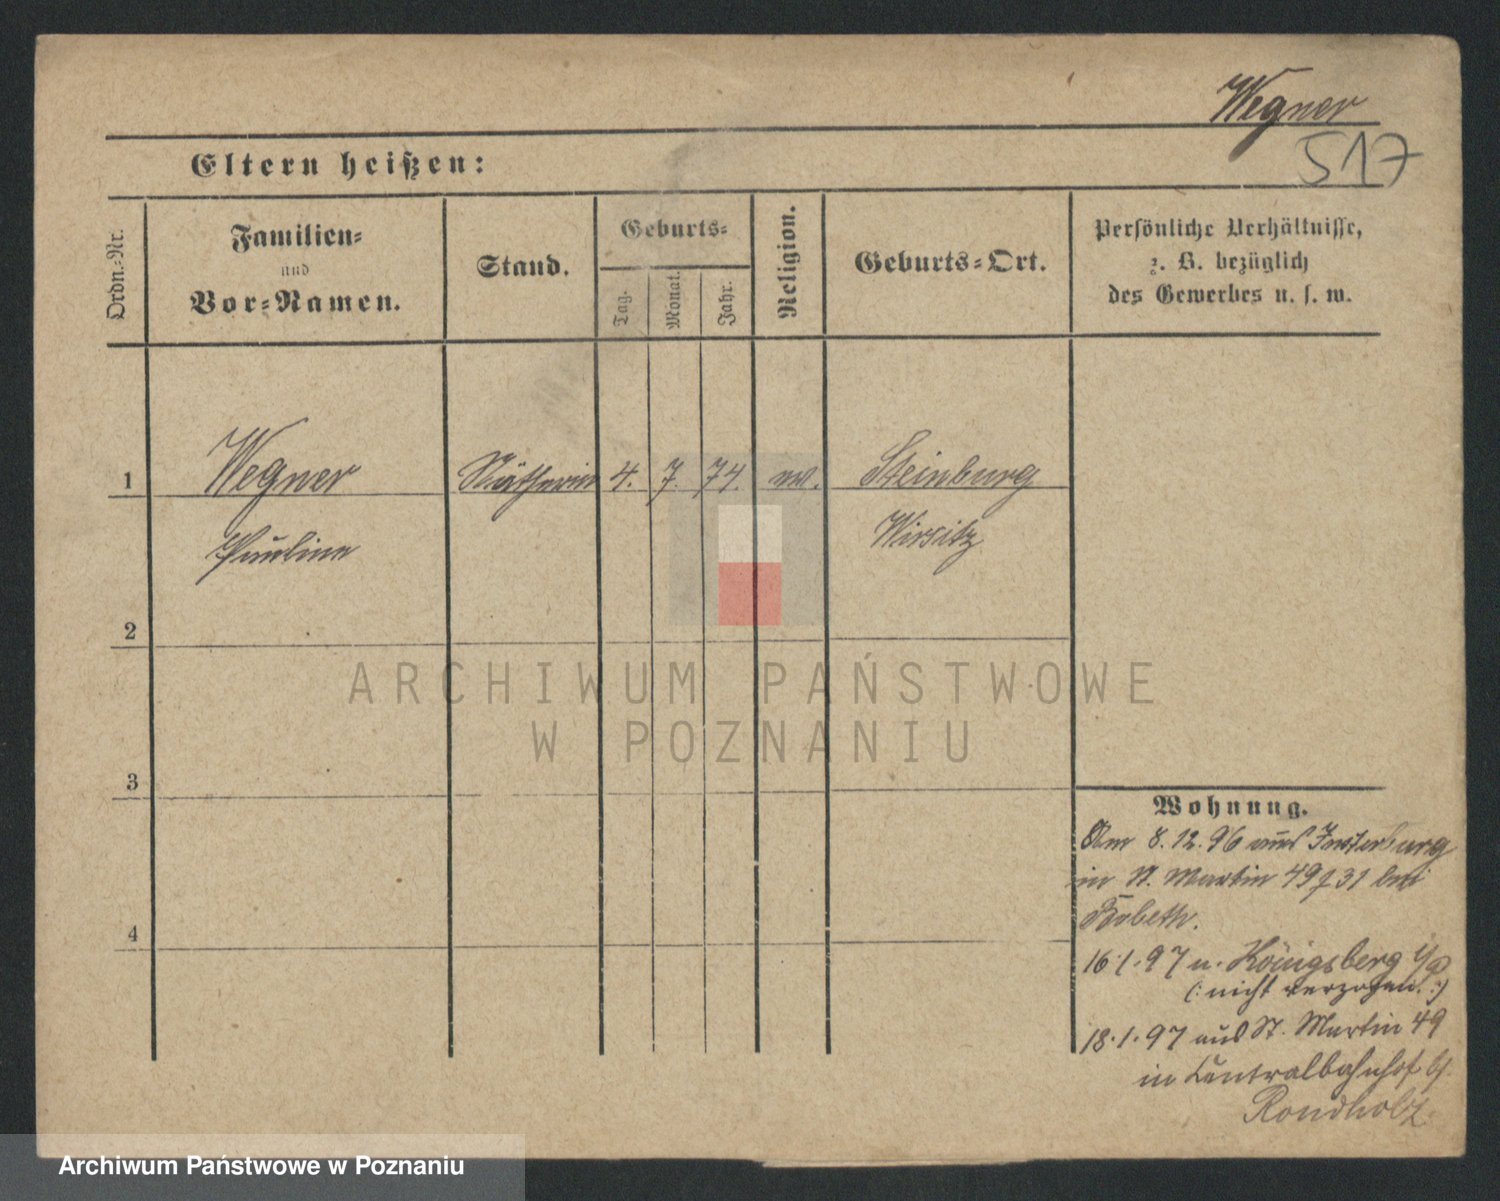 Wegner
517
Eltern heißen:
Ordn.-Nr.
Familien-
und
Vor-Namen.
Stand.
Geburts-
Tag.
Monat.
Jahr.
Religion.
Geburts-Ort.
Persönliche Verhältnisse,
z. B. bezüglich
des Gewerbes u. s. w.
1
Wegner
Nätherin
4.
7.
74.
ev.
Steinburg
Pauline
Wirsitz
2
ARCHIWUM PAŃSTWOWE
W POZNANIU
3
Wohnung.
Am 8.12.96 aus Insterburg
in St. Martin 49 31 bei
4
16.1.97 n. Königsberg i/p
(: nicht verzogen. :)
18.1.97 aus St. Martin 49
in Centralbahnhof b/
Rondholz.
Archiwum Państwowe w Poznaniu